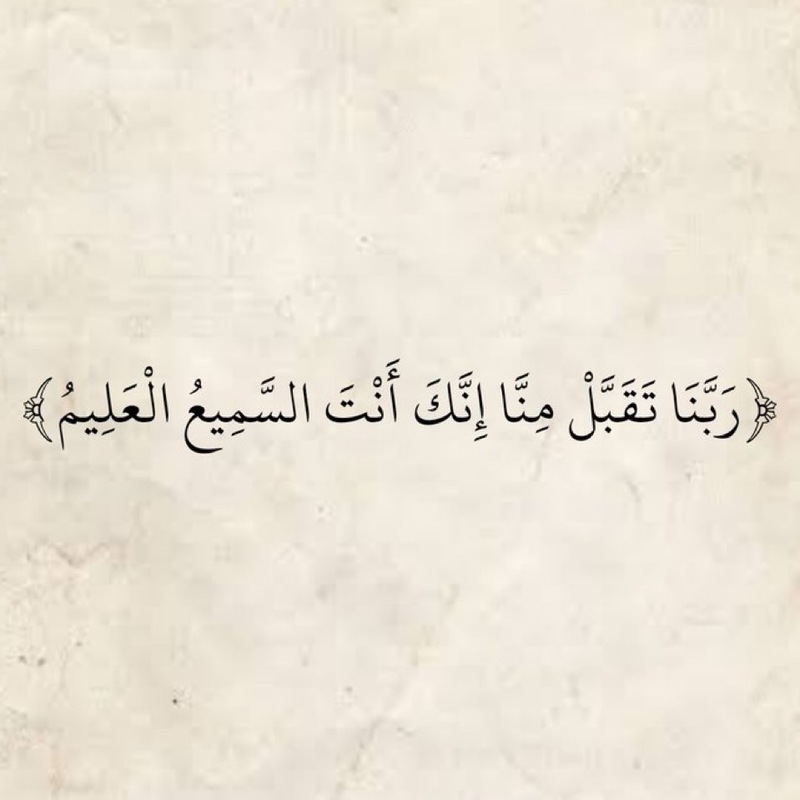 ﴿رَبَّنَا تَقَبَّلْ مِنَّا إِنَّكَ أَنْتَ السَّمِيعُ الْعَلِيمُ﴾